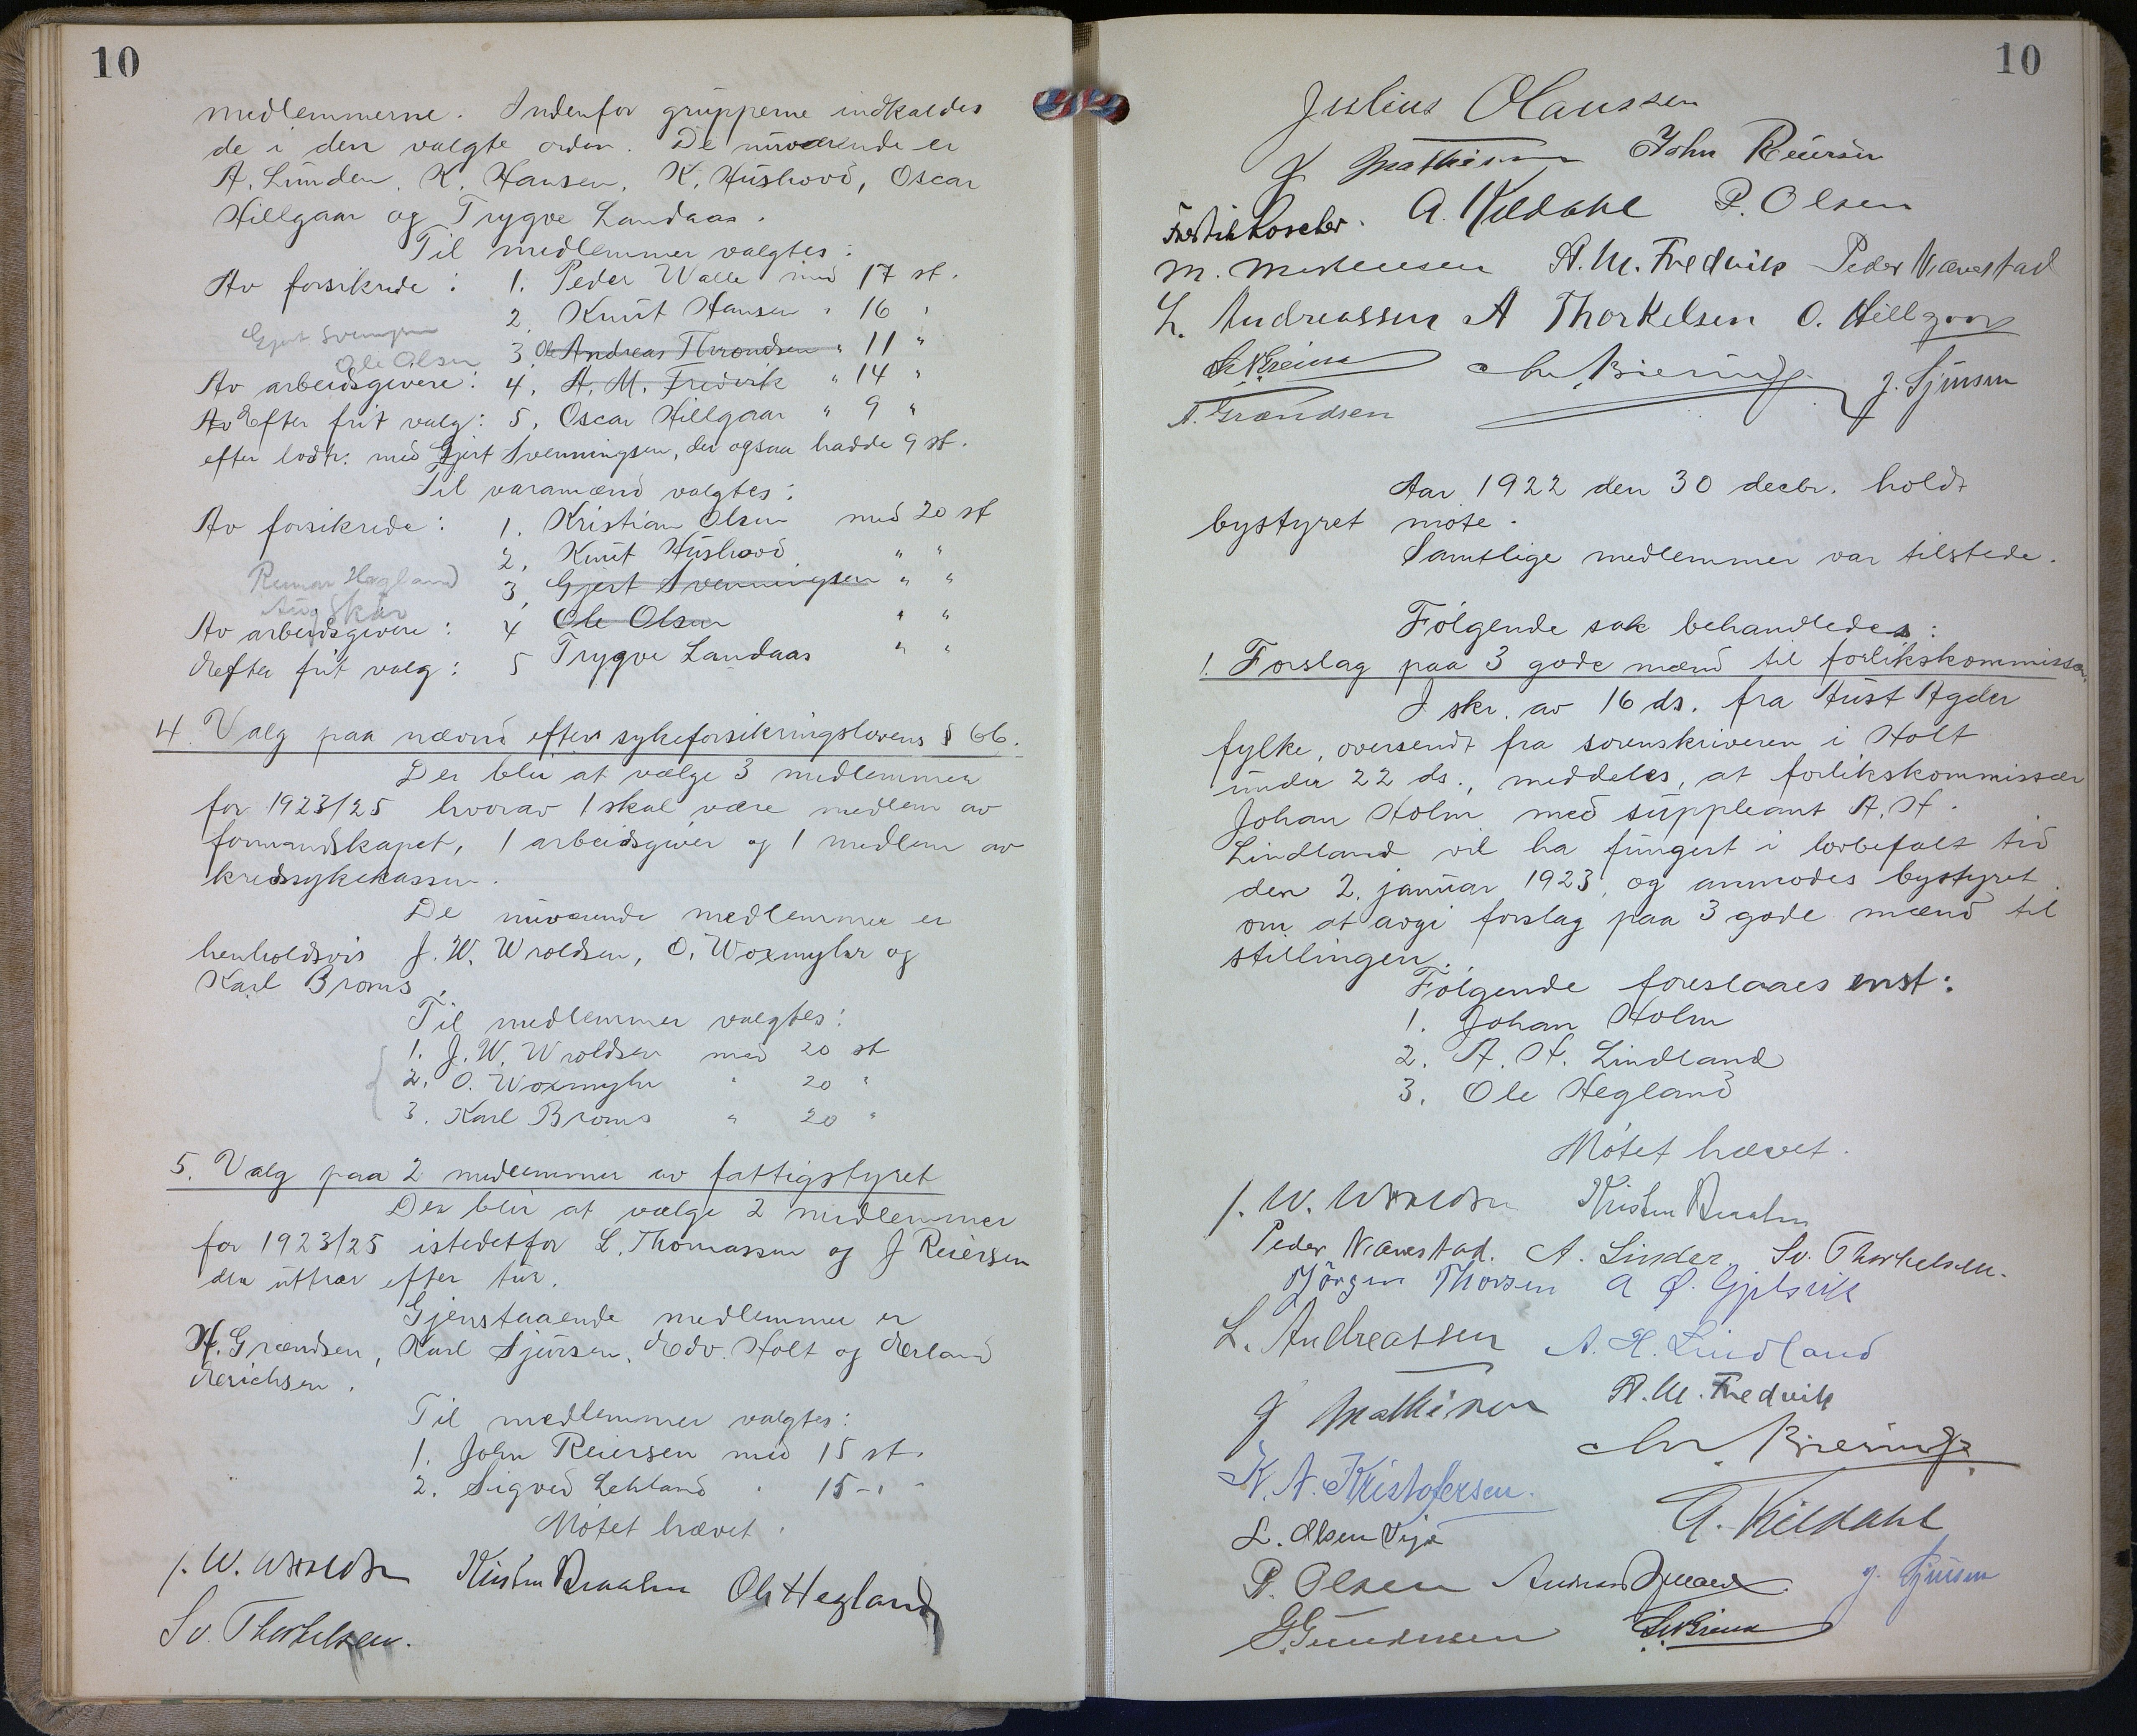 10
medlemmerne. Indenfor grupperne indkaldes
de i den valgte orden. De nuværende er
A. Lunden, K. Hansen, K. Hushovd, Oscar
Hillgaar og Trygve Landaas.
Til medlemmer valgtes:
Av forsikrede: 1. Peder Walle med 17 st.
2. Knut Hansen " 16 "
Gjert Svenningsen
3. Andreas Throndsen " 11 "
Ole Olsen
Av arbeidsgivere: 4. A. M. Fredvik " 14 "
Efter frit valg: 5. Oscar Hillgaar " 9 "
efter lodtr. med Gjert Svenningsen, der ogsaa hadde 9 st.
Til varamænd valgtes:
Av forsikrede: 1. Kristian Olsen med 20 st
2. Knut Hushovd " "
Reinar Hegland
3. Gjert Svenningsen " "
Aug Skår
Av arbeidsgivere: 4 Ole Olsen " "
Efter frit valg: 5 Trygve Landaas " "
4. Valg paa nævnd efter sykeforsikringslovens § 66.
Der blir at vælge 3 medlemmer
for 1923/25 hvorav 1 skal være medlem av
formandskapet, 1 arbeidsgiver og 1 medlem av
kredssykekassen.
De nuværende medlemmer er
henholdsvis J. W. Wroldsen, O. Woxmyhr og
Karl Broms.
Til medlemmer valgtes:
1. J. W. Wroldsen med 20 st
2. O. Woxmyhr " 20 "
3. Karl Broms " 20 "
5. Valg paa 2 medlemmer av fattigstyret
Der blir at vælge 2 medlemmer
for 1923/25 istedetfor L. Thomassen og J Reiersen
der uttrær efter tur.
Gjenstaaende medlemmer er
N. Grændsen, Karl Sjursen, Edv. Holt og Erland
Erichsen.
Til medlemmer valgtes:
1. John Reiersen med 15 st.
2. Sigved Lekland " 15 - " -
Møtet hævet.
J. W. Wroldsen Kristen Braalen Ole Hegland
Sv. Thorkelsen.
10
Julius Olaussen
J Mathisen John Reiersen
A. Kildahl P. Olsen
M. Mortensen A. M. Fredvik Peder Nævestad
L. Andreassen A Thorkelsen O. Hillgaar
Chr. Bierring J. Sjursen
N. Grændsen
Aar 1922 den 30 decbr. holdt
bystyret møte.
Samtlige medlemmer var tilstede.
Følgende sak behandledes:
1. Forslag paa 3 gode mænd til forlikskommissær.
I skr. av 16 ds. fra Aust Agder
fylke, oversendt fra sorenskriveren i Holt
under 22 ds., meddeles, at forlikskommissær
Johan Holm med suppleant A. H.
Lindland vil ha fungert i lovbefalt tid
den 2. januar 1923, og anmodes bystyret
om at avgi forslag paa 3 gode mænd til
stillingen.
Følgende foreslaaes enst:
1. Johan Holm
2. A. H. Lindland
3. Ole Hegland
Møtet hævet.
J. W. Wroldsen Kristen Braalen
Peder Nævestad. A. Linder. Sv. Thorkelsen.
Jörgen Thorsen A Ø. Gjelsvik
L. Andreassen A. H. Lindland
J Mathisen A. M. Fredvik
Chr. Bierring
K. N. Kristofersen.
L. Olsen Vejø A. Kildahl
P. Olsen J. Sjursen
G Gundersen